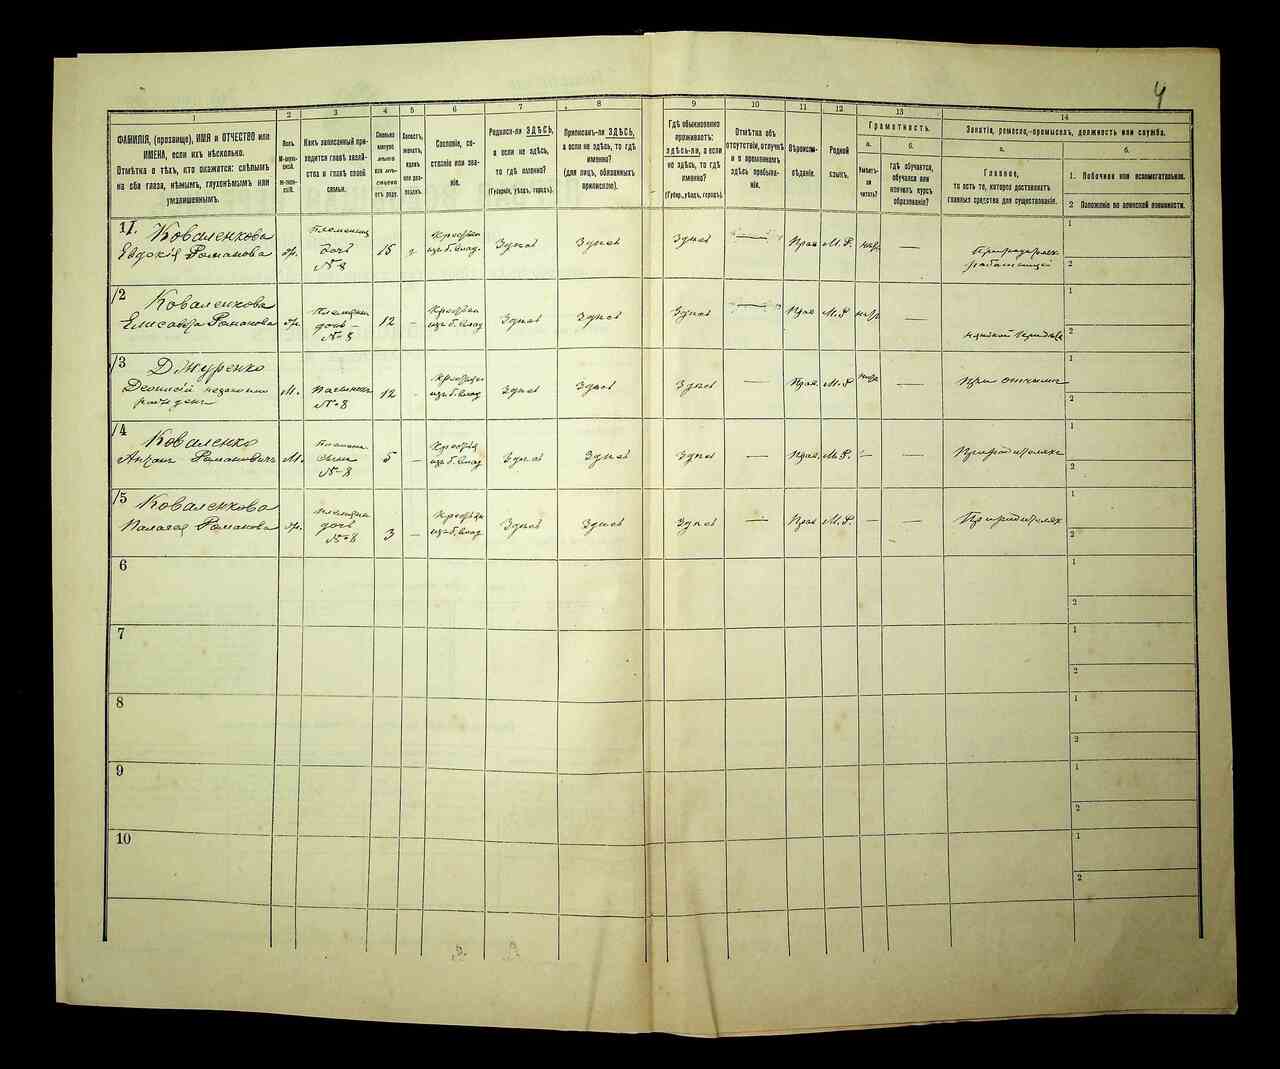 4
1 2 3 4 5 6 7 8 9 10 11 12 13 14
ФАМИЛІЯ, (прозвище), ИМЯ и ОТЧЕСТВО или
ИМЕНА, если ихъ нѣсколько.
Отмѣтка о тѣхъ, кто окажется: слѣпымъ
на оба глаза, нѣмымъ, глухонѣмымъ или
умалишеннымъ.
Полъ.
М-мужской.
Ж-женскій.
Какъ записанный приходится главѣ хозяйства и главѣ своей семьи.
Сколько минуло лѣтъ или мѣсяцевъ отъ роду.
Холостъ, женатъ, вдовъ или разведенъ.
Сословіе, состояніе или званіе.
Родился-ли ЗДѢСЬ,
а если не здѣсь,
то гдѣ именно?
(Губернія, уѣздъ, городъ).
Приписанъ-ли ЗДѢСЬ,
а если не здѣсь, то гдѣ
именно?
(для лицъ, обязанныхъ
припискою).
Гдѣ обыкновенно
проживаетъ:
здѣсь-ли, а если
не здѣсь, то гдѣ
именно?
(Губер., уѣздъ, городъ).
Отмѣтка объ
отсутствіи, отлучкѣ
и о временномъ
здѣсь пребываніи.
Вѣроисповѣданіе.
Родной
языкъ.
Грамотность.
а.
Умѣетъ-ли
читать?
б.
гдѣ обучается,
обучался или
кончилъ курсъ
образованія?
Занятіе, ремесло, промыселъ, должность или служба.
а.
Главное,
то есть то, которое доставляетъ
главныя средства для существованія.
б.
1. Побочное или вспомогательное.
2 Положеніе по воинской повинности.
11. Коваленкова
Евдокія Романова
дочь
№ 8
15
Здѣсь Здѣсь Здѣсь — Прав. М. Р. —
1
2
/2 Коваленкова
Елисавета Романова
дочь
№ 8
12 —
изъ б. влад.
Здѣсь Здѣсь Здѣсь — Прав М. Р —
1
2
/3 Джуренко
Деонисій незаконно
рожденъ
М.
№ 8
12
изъ б. влад
Здѣсь Здѣсь Здѣсь — Прав. М. Р —
1
2
/4 Коваленко
Антонъ Романовичъ М.
№ 8
5 —
изъ б. влад
Здѣсь Здѣсь Здѣсь — Прав. М. Р. — —
При родителяхъ
1
2
/5 Коваленкова
Палагея Романова
дочь
№ 8
3 —
изъ б. влад
Здѣсь Здѣсь Здѣсь — Прав М. Р. — —
При родителяхъ
1
2
6
1
2
7
1
2
8
1
2
9
1
2
10
1
2